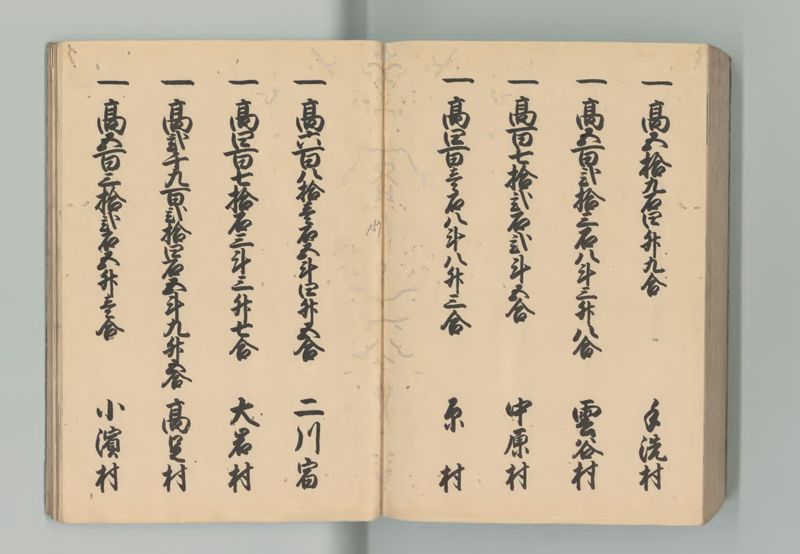 一 高五拾九石四升九合 手洗村
一 高五百弐拾三石八斗三升八合 雲谷村
一 高百七拾弐石弐斗五合 中原村
一 高四百壱石八斗八升三合 原村
一 高六百八拾壱石五斗四升五合 二川宿
一 高四百七拾石三斗三升七合 大岩村
一 高弐千九百弐拾四石五斗九升五合 高足村
一 高五百三拾弐石五升壱合 小濱村